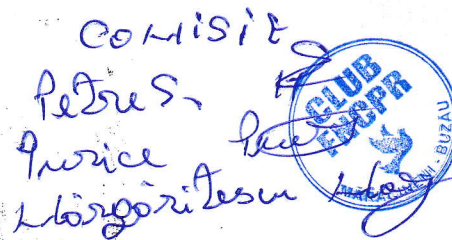 COMISIE
Petre S.
Purice
Mărgăritescu
CLUB
FNCPR
MARACINENI - BUZAU